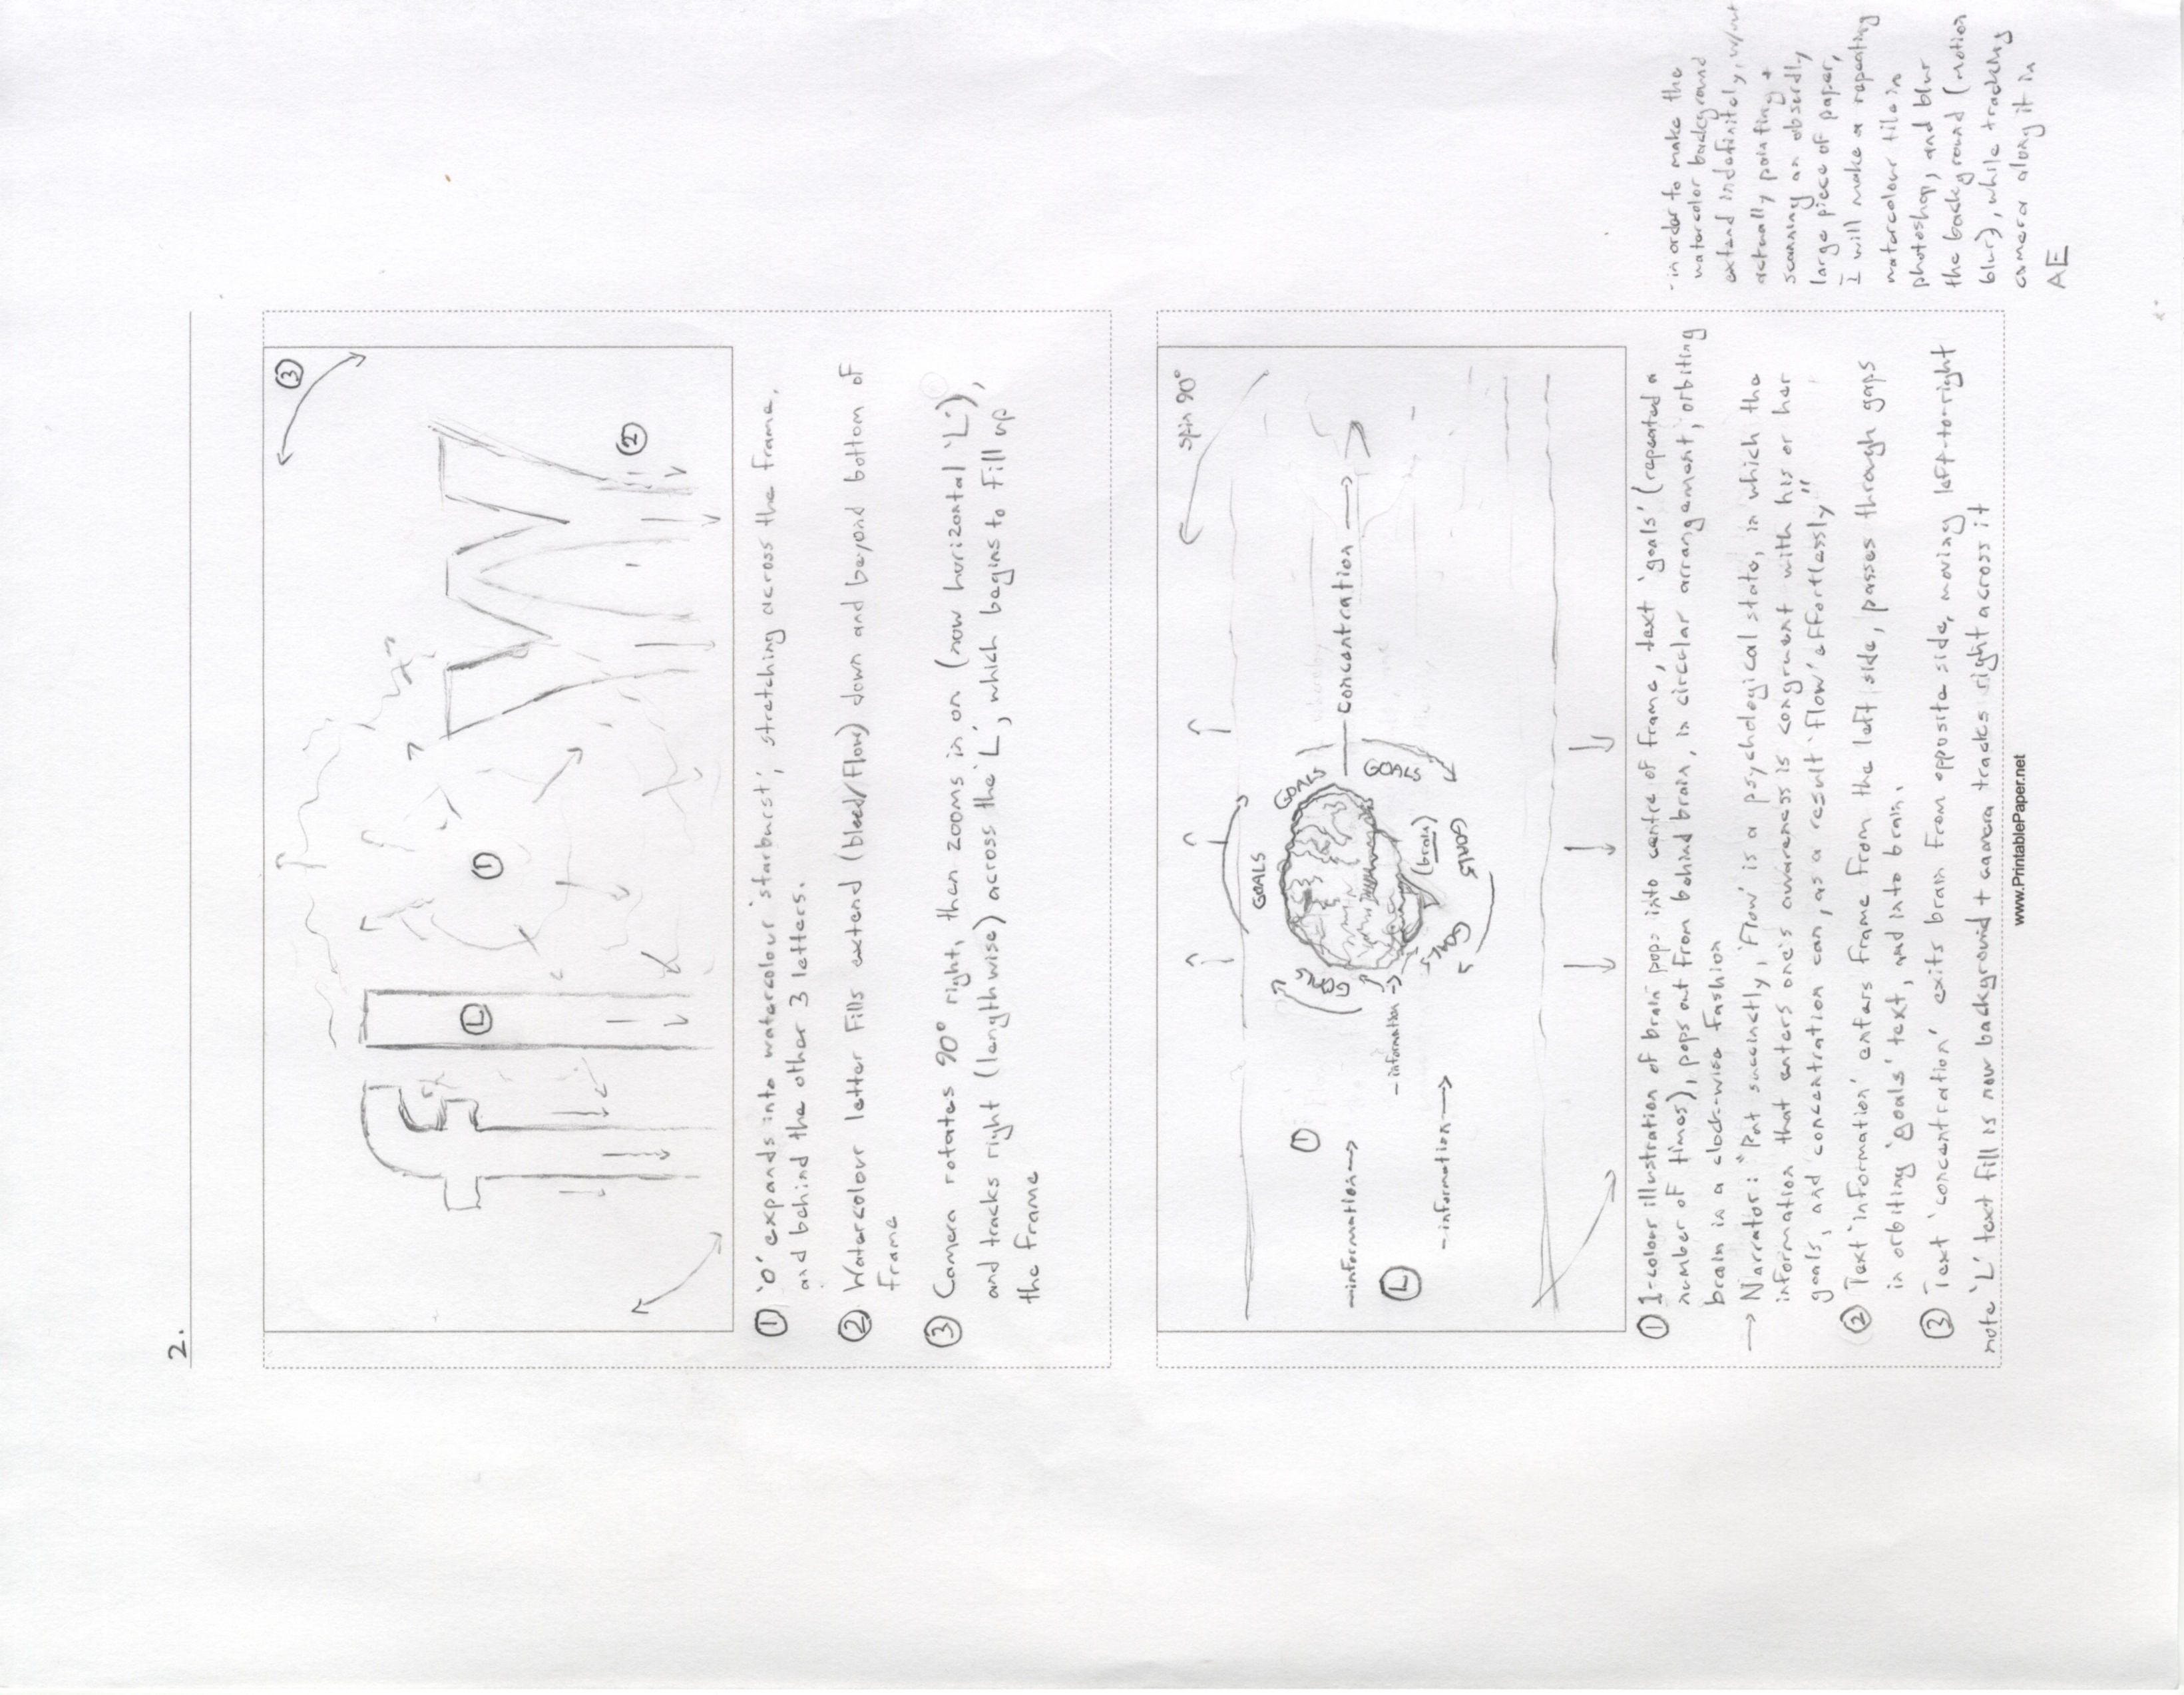 2.
3
flow
1
L
2
① 'O' expands into watercolour 'starburst', stretching across the frame,
and behind the other 3 letters.
② Watercolour letter fills extend (bleed/flow) down and beyond bottom of
frame
③ Camera rotates 90° right, then zooms in on (now horizontal 'L'),
and tracks right (lengthwise) across the 'L', which begins to fill up
the frame
spin 90°
GOALS
GOALS
GOALS
GOALS
GOALS
GOALS
(brain)
Concentration
①
information
information
information
L
① 1-colour illustration of brain pops into centre of frame, text 'goals' (repeated a
number of times), pops out from behind brain, in circular arrangement, orbiting
brain in a clock-wise fashion
→ Narrator: "Put succinctly, 'Flow' is a psychological state, in which the
information that enters one's awareness is congruent with his or her
goals, and concentration can, as a result 'flow' effortlessly"
② Text 'information' enters frame from the left side, passes through gaps
in orbiting 'goals' text, and into brain.
③ Text 'concentration' exits brain from opposite side, moving left-to-right
note 'L' text fill is now background + camera tracks right across it
- in order to make the
watercolor background
extend indefinitely, w/out
actually painting +
scanning an absurdly
large piece of paper,
I will make a repeating
watercolour tile in
photoshop, and blur
the background (motion
blur), while tracking
camera along it in
AE
www.PrintablePaper.net